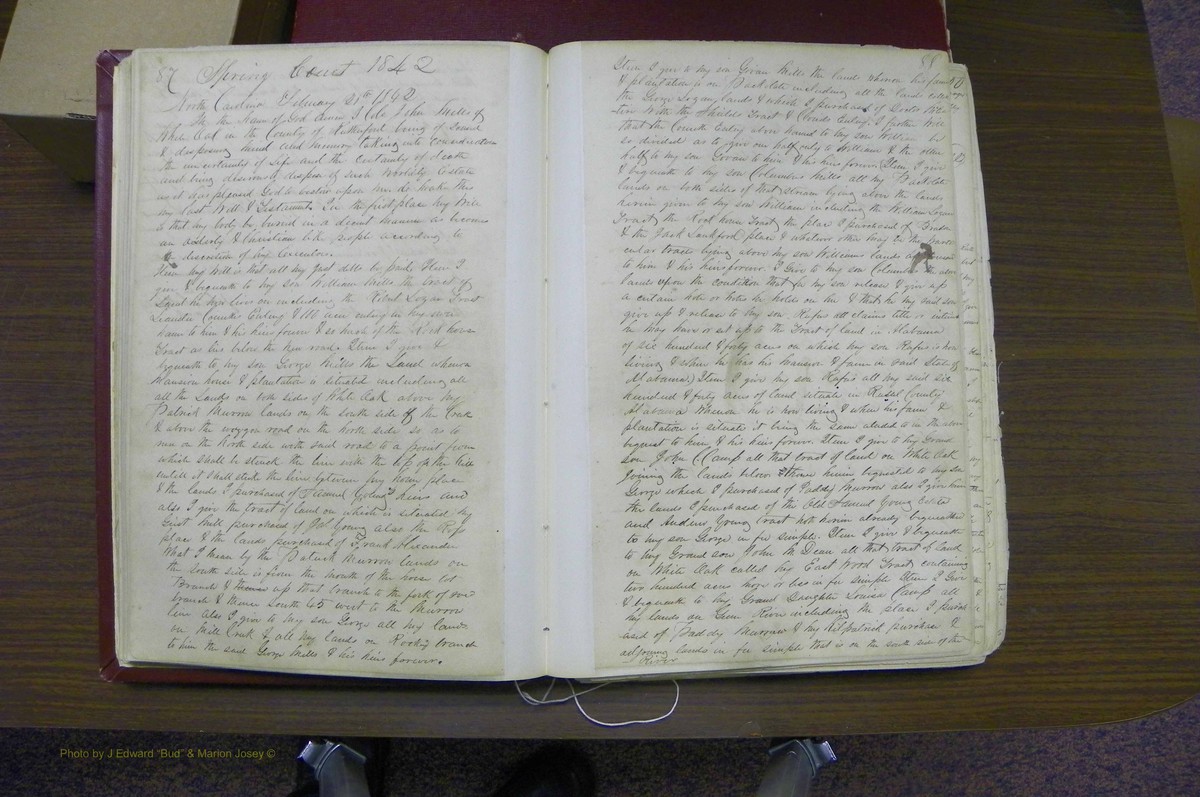 87 Spring Court 1842
North Carolina February 21st 1842
In the Name of God Amen I Col. John Mills of
White Oak in the County of Rutherford being of sound
& disposing mind and memory taking into consideration
the uncertainty of Life and the certainty of death
and being desirous to dispose of such worldly Estate
as it has pleased God to bestow upon me do make this
my last Will & Testament. In the first place my Will
is that my body be buried in a decent manner as becomes
an orderly & Christian like people according to
discretion of my Executors.
Item my Will is that all my just debts be paid Item I
give & bequeath to my son William Mills the tract of
Land he now lives on including the Robert Logan Tract
County Entry & 100 acre entry in my own
name to him & his heirs forever & so much of the Rock house
Tract as lies below the new road. Item I give &
bequeath to my son George Mills the Land whereon
Mansion house & plantation is situated including all
all the Lands on both sides of White Oak above my
Patrick Murrow lands on the south side of the Creek
& above the waggon road on the North side so as to
run on the North side with said road to a point from
which shall be struck the line with the top of the Hill
until it shall strike the line between my own place
& the lands I purchased of heirs and
also I give the tract of land on which is situated my
Grist Mill purchased of Young also the Ross
place & the lands purchased of Frank Alexander
What I mean by the Patrick Murrow lands on
the south side is from the mouth of the horse lot
Branch & thence up that branch to the fork of said
branch & thence South 45 West to the Murrow
line also I give to my son George all my lands
on Mill Creek & all my lands on Rocky branch
to him the said George Mills & his heirs forever.
88
Item I give to my son Govan Mills the lands whereon his farm
& plantation is on including all the lands
the George Logan lands & which I purchased of Doctor
With the Shields Tract & County Entry. I further Will
that the County Entry above named to my son William
so divided as to give one half only to William & the other
half to my son Govan to him & his heirs forever Item I give
& bequeath to my son Columbus Mills all my
lands on both sides of that stream lying above the lands
herein given to my son William including the William Logan
Tract the Rock house Tract the place I purchased of
& the Jack Lankford place & whatever other may be the
tracts lying above my son Williams lands
to him & his heirs forever. I Give to my son Columbus
lands upon the condition that he my son release & give up
a certain note or notes he holds on me & that he my said son
give up & release to my son Rufus all claims title or interest
he may have or set up to the Tract of land in Alabama
of six hundred & forty acres on which my son Rufus is now
living & where he has his Mansion & farm in said State of
Alabama. Item I give my son Rufus all my said six
hundred & forty acres of land situate in Russel County
Alabama whereon he is now living & where his farm &
plantation is situate it being the same aluded to in the above
bequest to him & his heirs forever. Item I give to my Grand
son John Camp all that tract of land on White Oak
Joining the lands below those herein bequeathed to my son
George which I purchased of Paddy Murrow also I give him
the lands I purchased of the Old Young
and Andrew Young tract not herein already bequeathed
to my son George in fee simple. Item I give & bequeath
to my Grand son John M Dean all that tract of land
on White Oak called his East Wood Tract containing
two hundred acres more or less in fee simple Item I Give
& bequeath to my Grand Daughter Louisa Camp all
my lands on Green River including the place I purch
ased of Paddy Murrow & my Kilpatrick purchase &
adjoining lands in fee simple that is on the south side of the
River
Photo by J Edward "Bud" & Marion Josey ©